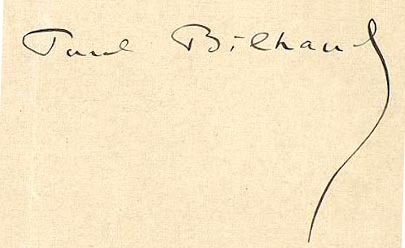 Paul Bilhaud